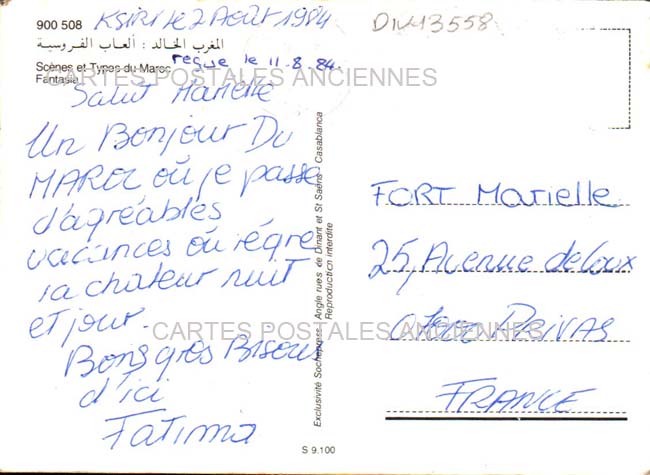 900 508
KSIRI le 2 Août 1984
DIV13558
المغرب الخالد : ألعاب الفروسية
Scènes et Types du Maroc
reçue le 11.8.84.
Fantasia
CARTES POSTALES ANCIENNES
Salut Marielle
Un Bonjour Du
MAROC où je passe
d'agréables
vacances où régne
la chaleur nuit
et jour.
Bons gros Bisous
d'ici
Fatima
Exclusivité Sochepress - Angle rues de Dinant et St Saëns - Casablanca
Reproduction interdite
FORT Marielle
25, Avenue de Coux
PRIVAS
CARTES POSTALES ANCIENNES
FRANCE
S 9.100